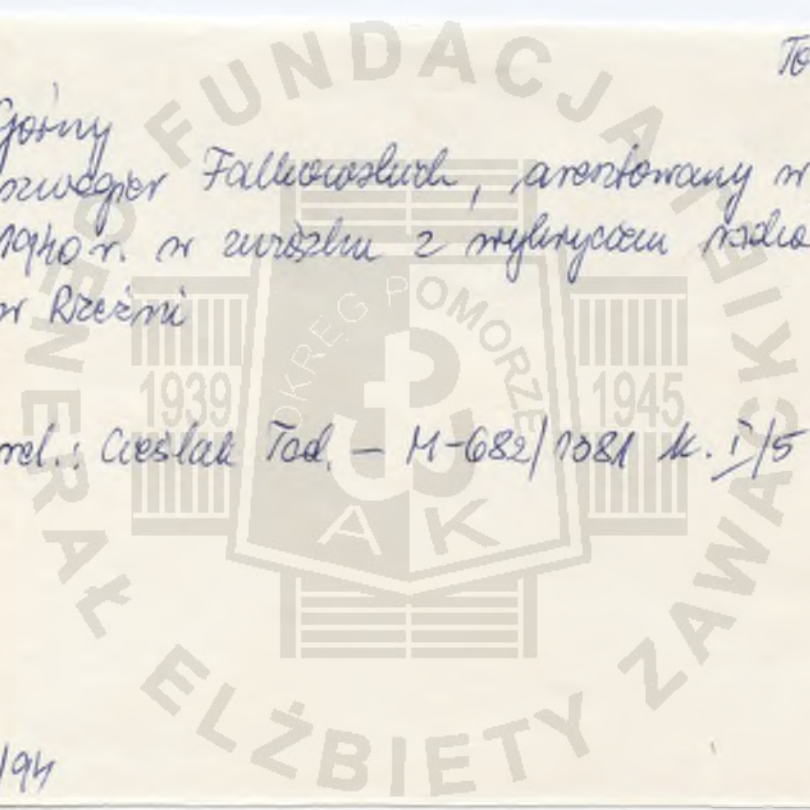 To
Górny
szwagier Falkowskich, aresztowany w
1940 r. w związku z wykryciem radio
w Rzeźni
rel.: Cieślak Tad. – M-682/1381 k. I/5
/94
FUNDACJA
GENERAŁ ELŻBIETY ZAWACKIEJ
OKRĘG POMORZE
1939
1945
AK